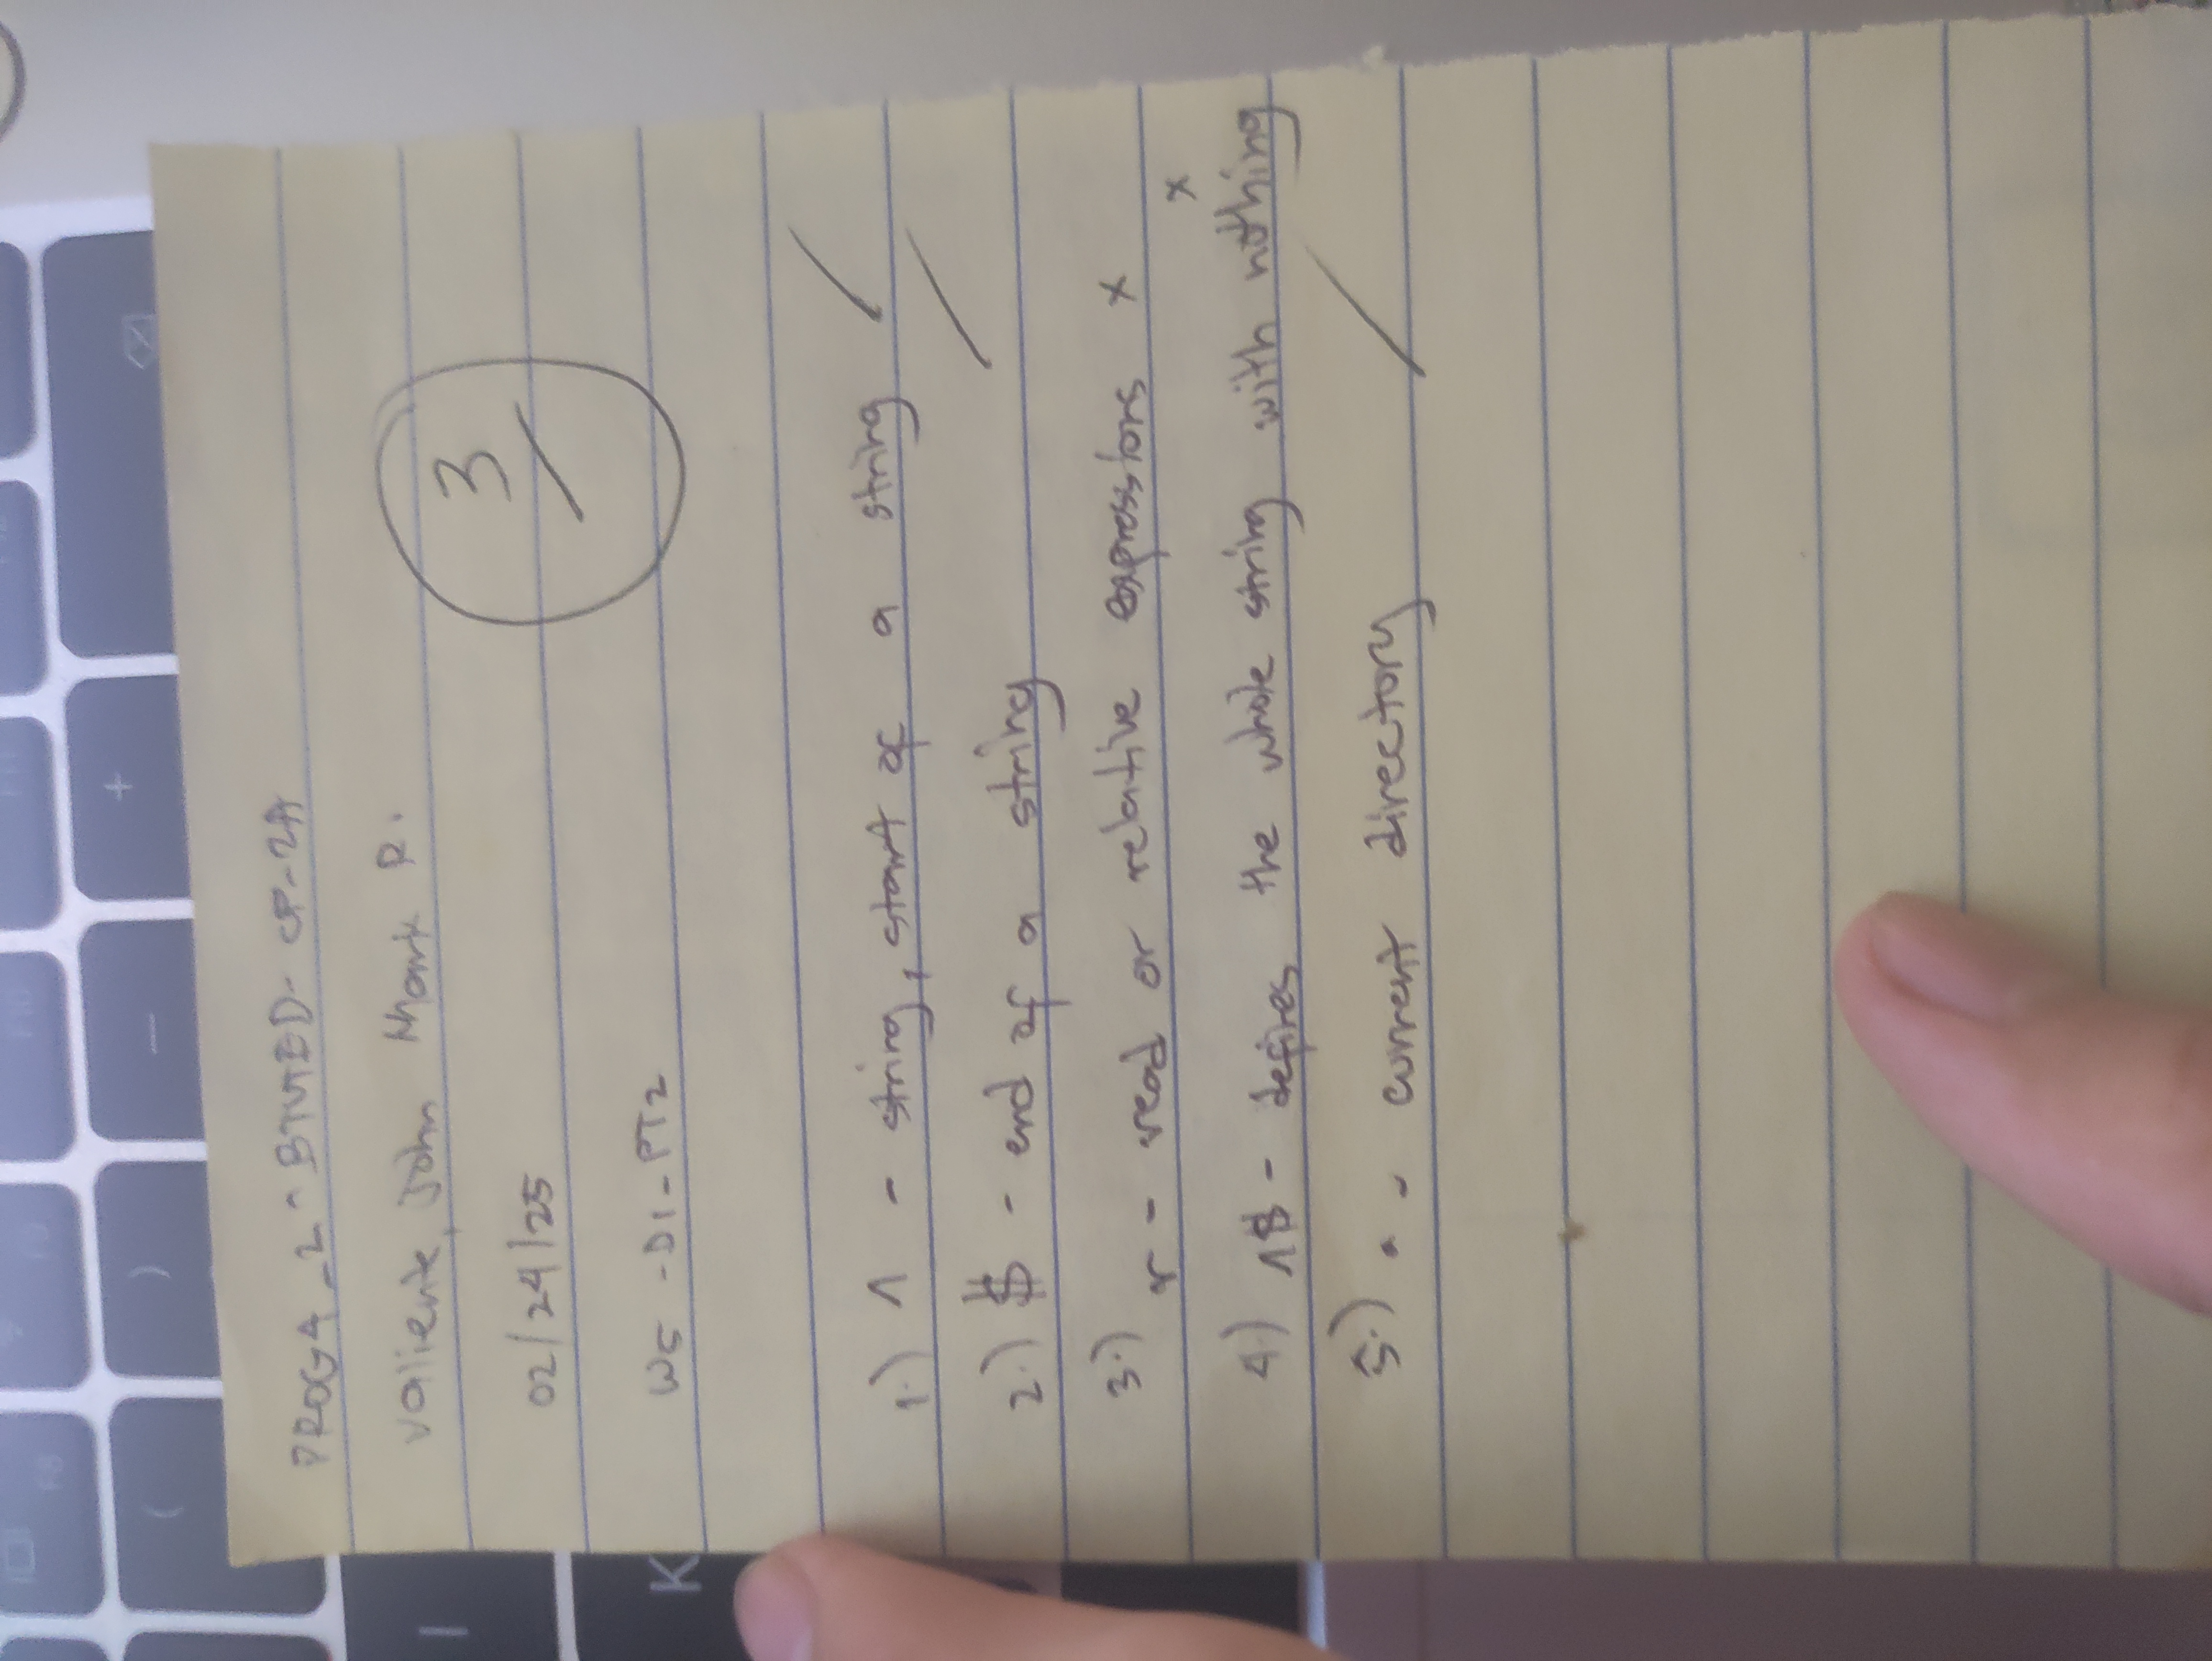 F8
F9
F10
( ) — +
I
K
PROG4_2-BTVTED-CP-2A
Valiente, John Mark R.
3
02/24/25
W5-D1-PT2
1.) ^ - string, start of a string /
2.) $ - end of a string /
3.) r - read or relative expressions x
x
4.) ^$ - defines the whole string with nothing
5.) . - current directory /